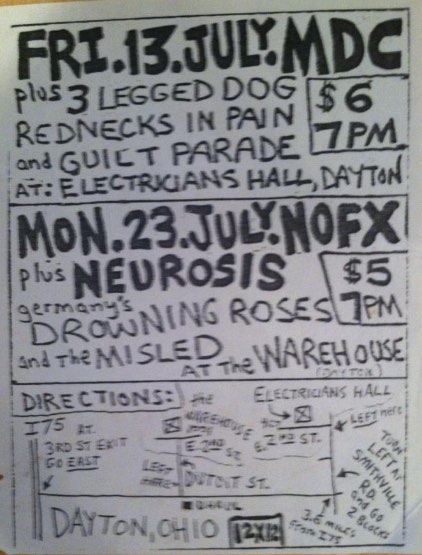 FRI.13.JULY.MDC
plus 3 LEGGED DOG
REDNECKS IN PAIN
and GUILT PARADE
$6
7PM
AT: ELECTRICIANS HALL, DAYTON
MON.23.JULY.NOFX
plus NEUROSIS
germany's
DROWNING ROSES
$5
7PM
and The MISLED
AT The WAREHOUSE
(DAYTON)
DIRECTIONS:
the
WAREHOUSE
ELECTRICIANS HALL
I75 AT
3RD ST EXIT
GO EAST
E. 2ND ST.
E. 2ND ST.
LEFT here
LEFT
HERE
DUTOIT ST.
TURN
LEFT AT
SMITHVILLE
RD.
and GO
2 BLOCKS
3.6 MILES
From I75
DAYTON, OHIO
12X12